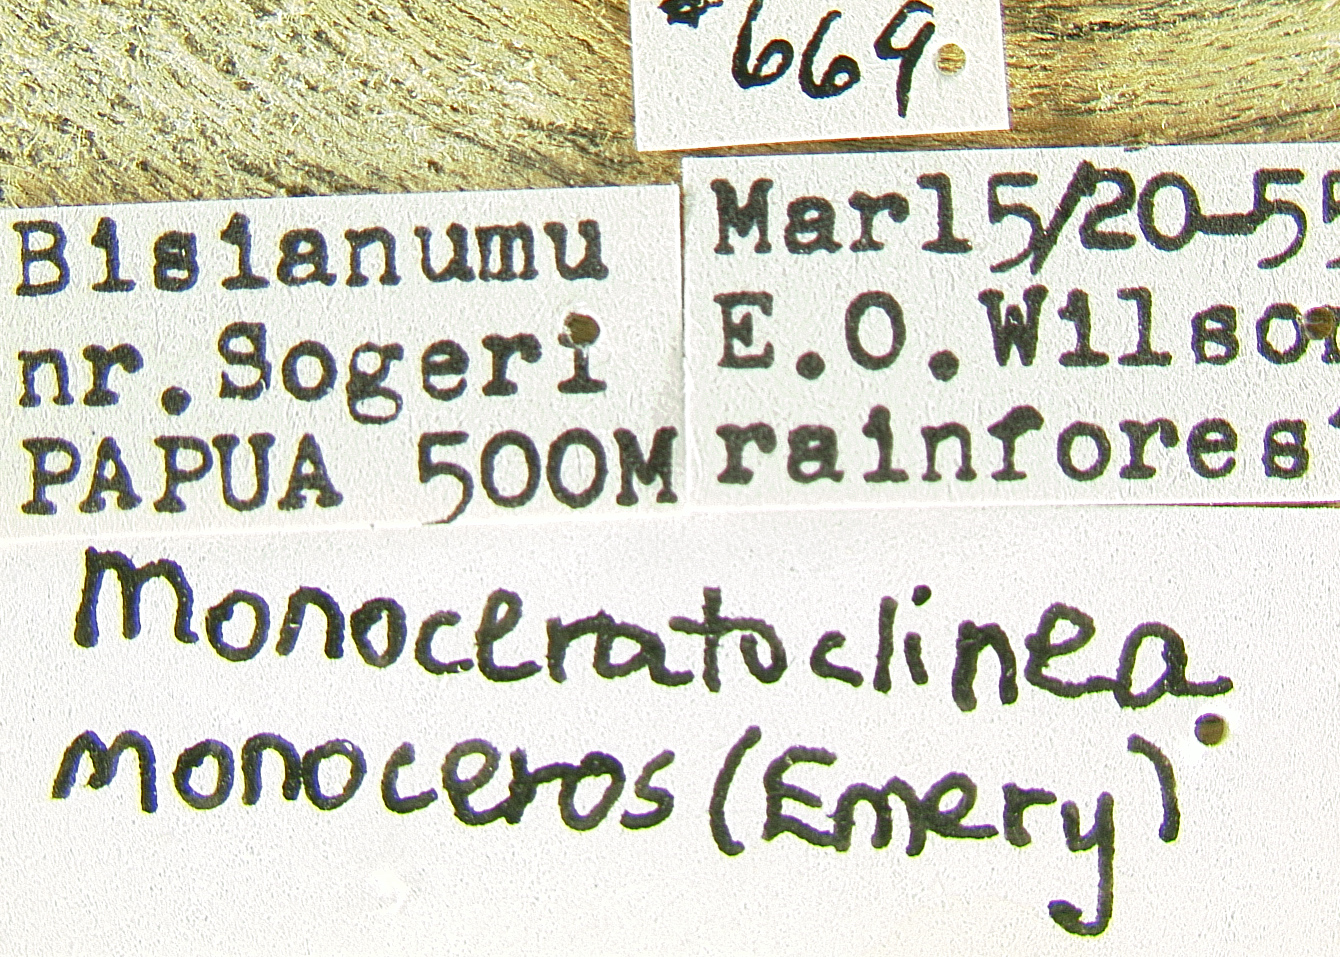 #669
Bisianumu
nr.Sogeri
PAPUA 500M
Mar15/20-55
E.O.Wilson
rainfores
Monoceratoclinea
monoceros (Emery)